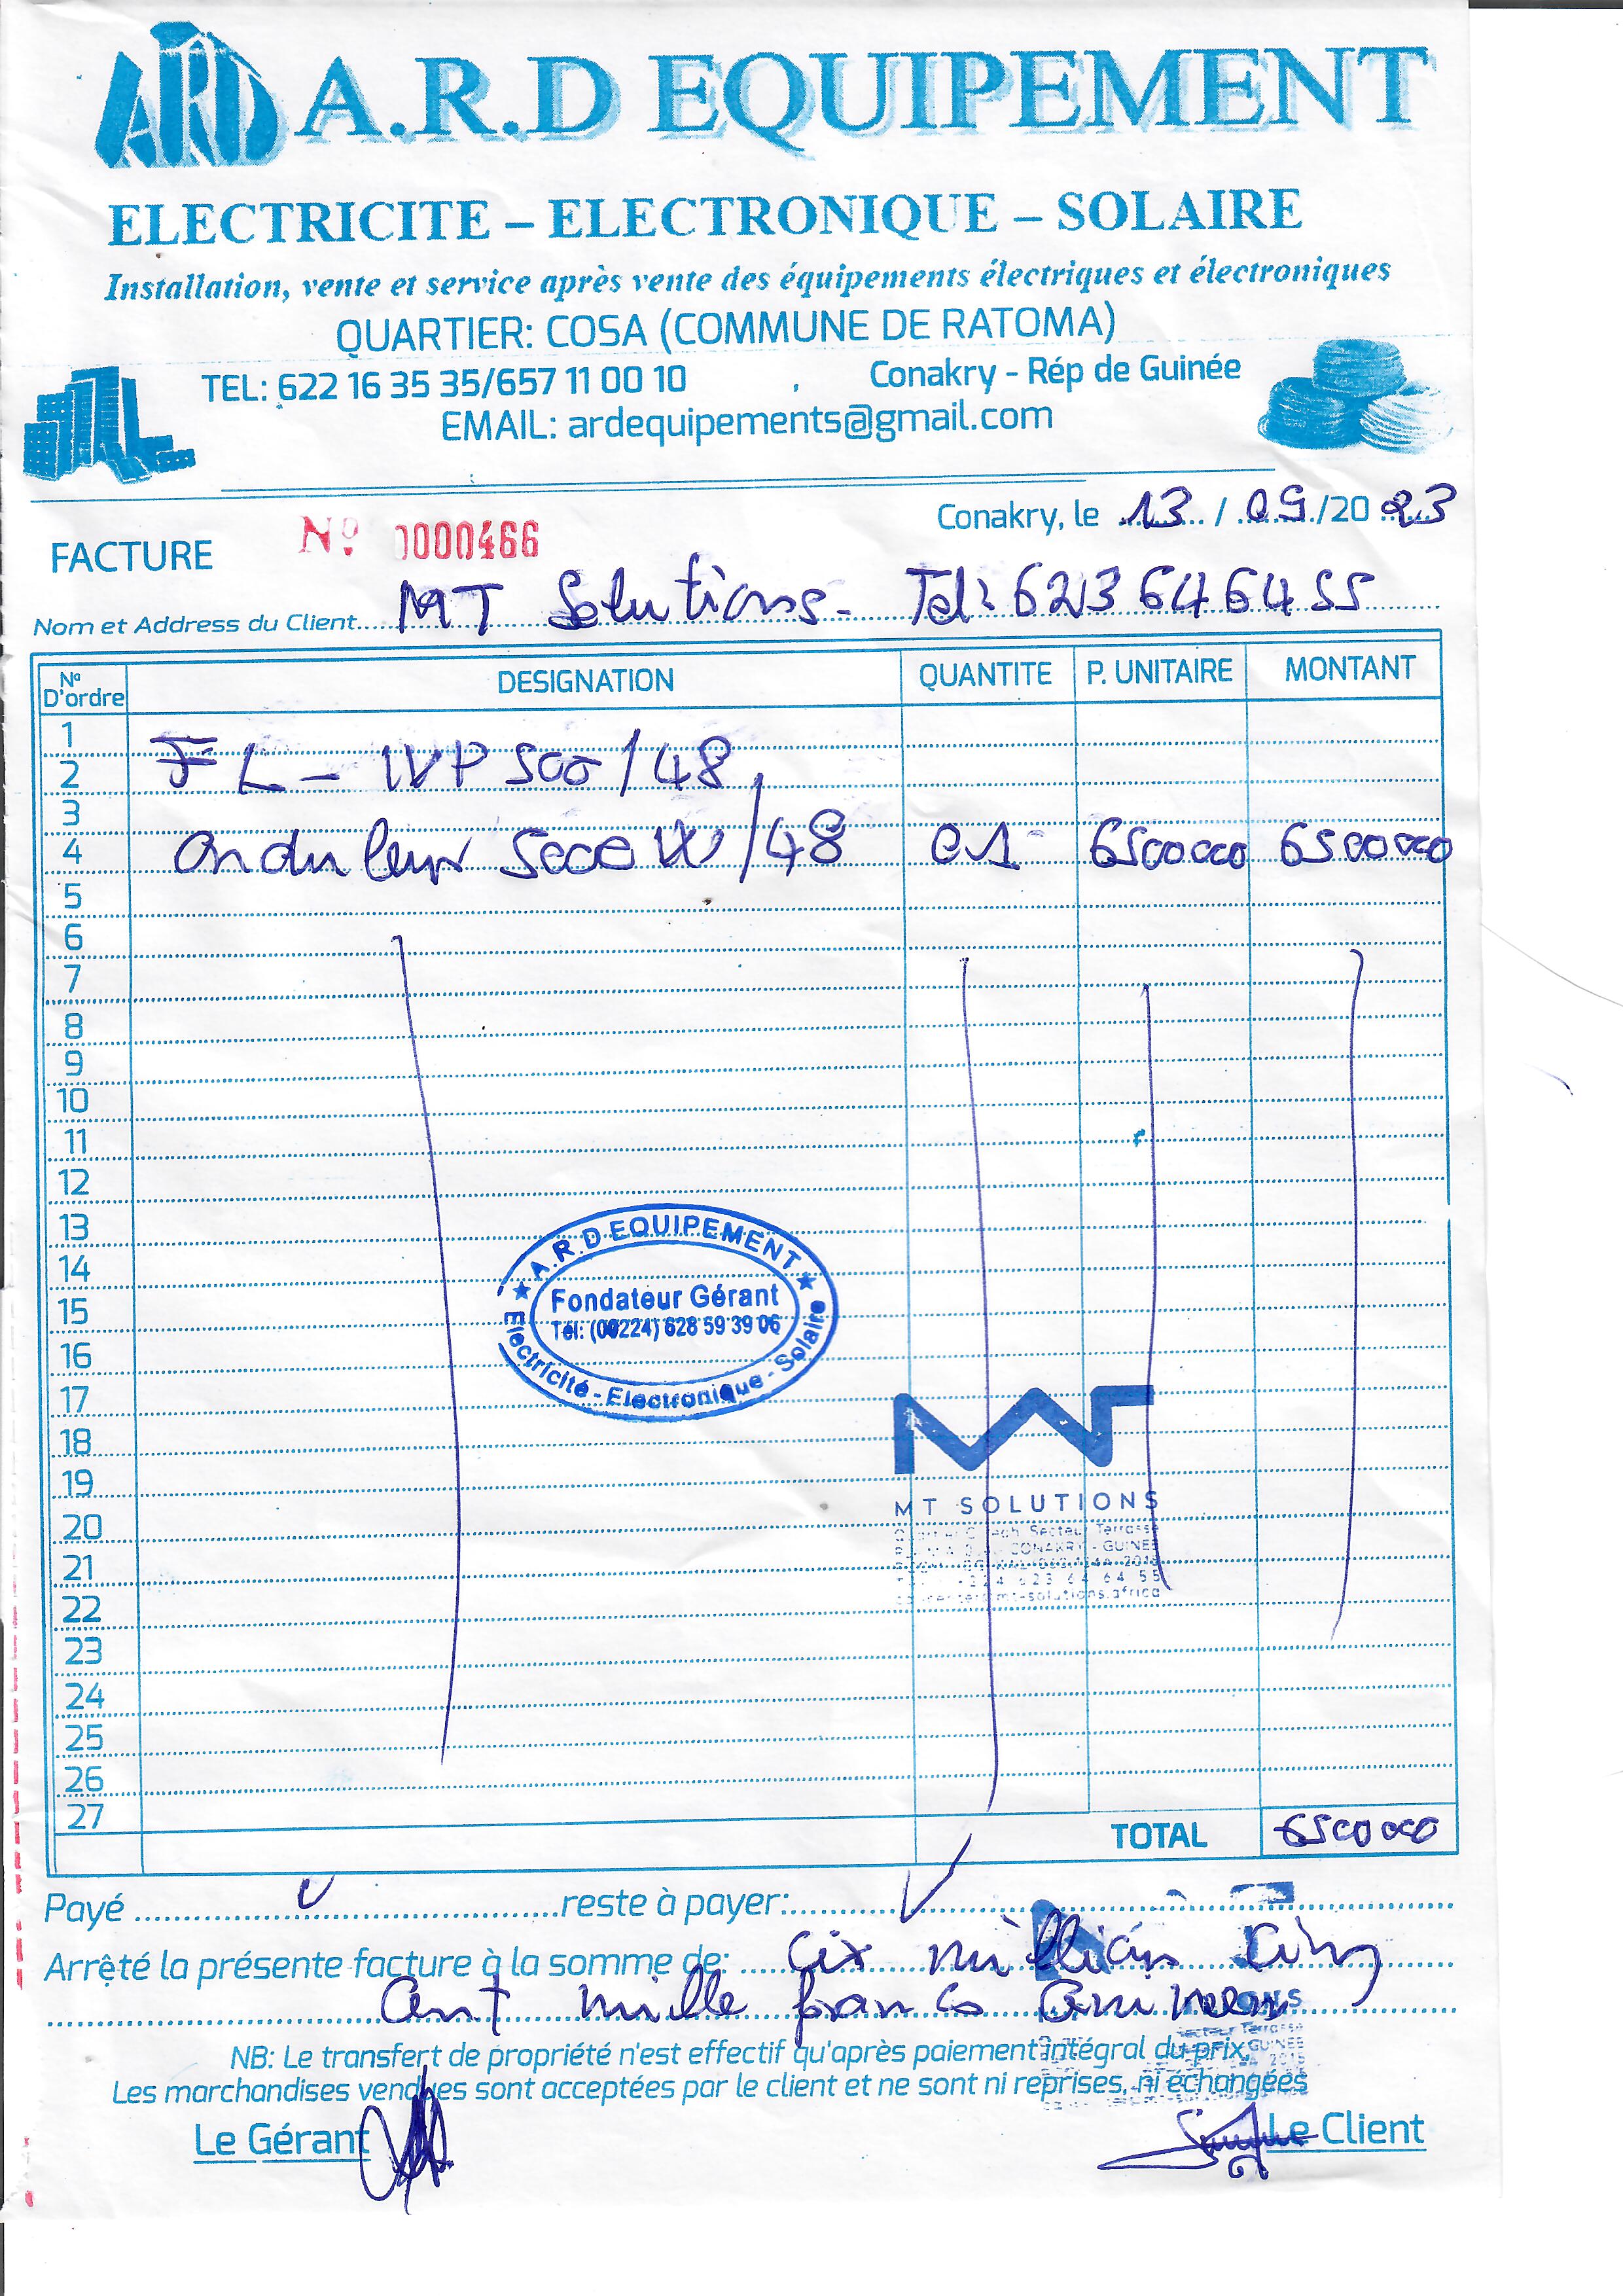 ARD A.R.D EQUIPEMENT
ELECTRICITE – ELECTRONIQUE – SOLAIRE
Installation, vente et service après vente des équipements électriques et électroniques
QUARTIER: COSA (COMMUNE DE RATOMA)
TEL: 622 16 35 35/657 11 00 10 Conakry - Rép de Guinée
EMAIL: ardequipements@gmail.com
Conakry, le 13 / 09 /20 23
FACTURE Nº 0000466
Nom et Address du Client MT Solutions - Tel: 623 64 64 55
Nº D'ordre DESIGNATION QUANTITE P. UNITAIRE MONTANT
1
2 FL - IVP 500/48
3
4 onduleur 5000 W/48 01 6500000 6500000
5
6
7
8
9
10
11
12
13
14
15
16
17
18
19
20
21
22
23
24
25
26
27
A.R.D EQUIPEMENT
Fondateur Gérant
Tél: (00224) 628 59 39 06
Electricité - Electronique - Solaire
MT SOLUTIONS
Secteur Terrasse
CONAKRY - GUINEE
623 64 64 55
mt-solutions.africa
TOTAL 6500000
Payé reste à payer:
Arrêté la présente facture à la somme de: Six million Cinq
Cent mille francs Guineen
ONS
Secteur Terrasse
GUINEE
NB: Le transfert de propriété n'est effectif qu'après paiement intégral du prix,
Les marchandises vendues sont acceptées par le client et ne sont ni reprises, ni échangées
Le Gérant Le Client